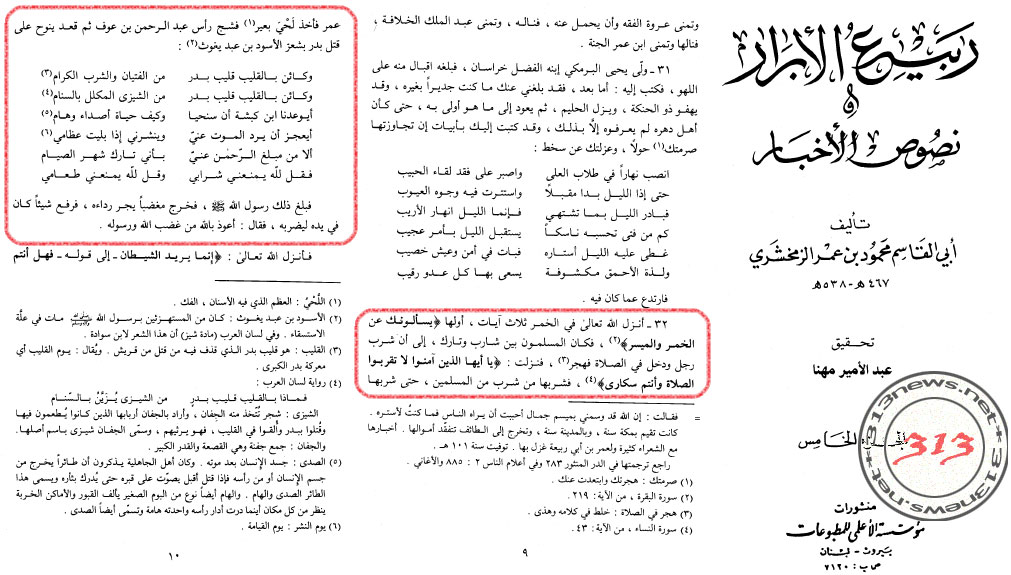 ربيع الأبرار
و
نصوص الأخبار
تأليف
أبي القاسم محمود بن عمر الزمخشري
٤٦٧هـ-٥٣٨هـ
تحقيق
عبد الأمير مهنا
الخامس
منشورات
مؤسسة الأعلمي للمطبوعات
بيروت - لبنان
ص.ب : ٧١٢٠
313
*313news.net*313news.net
وتمنى عروة الفقه وأن يحمل عنه ، فناله ، وتمنى عبد الملك الخلافة ،
فنالها وتمنى ابن عمر الجنة .
٣١ - ولّى يحيى البرمكي إبنه الفضل خراسان ، فبلغه اقبال منه على
اللهو ، فكتب إليه : أما بعد ، فقد بلغني عنك ما كنت جديراً بغيره ، وقد
يهفو ذو الحنكة ، ويزل الحليم ، ثم يعود إلى ما هو أولى به ، حتى كأن
أهل دهره لم يعرفوه إلّا بذلك ، وقد كتبت إليك بأبيات إن تجاوزتها
صرمتك(١) حولاً ، وعزلتك عن سخط :
انصب نهاراً في طلاب العلى واصبر على فقد لقاء الحبيب
حتى إذا الليل بدا مقبلاً واستترت فيه وجوه العيوب
فبادر الليل بما تشتهي فإنما الليل انهار الأريب
كم من فتى تحسبه ناسكاً يستقبل الليل بأمر عجيب
غطى عليه الليل أستاره فبات في أمن وعيش خصيب
ولذة الأحمق مكشوفة يسعى بها كل عدو رقيب
فارتدع عما كان فيه .
٣٢ - أنزل الله تعالى في الخمر ثلاث آيات ، أولها ﴿يسألونك عن
الخمر والميسر﴾(٢) ، فكان المسلمون بين شارب وتارك ، إلى أن شرب
رجل ودخل في الصلاة فهجر(٣) ، فنزلت : ﴿يا أيها الذين آمنوا لا تقربوا
الصلاة وأنتم سكارى﴾(٤) ، فشربها من شرب من المسلمين ، حتى شربها
= فقالت : إن الله قد وسمني بميسم جمال أحببت أن يراه الناس فما كنتُ لأستره .
كانت تقيم بمكة سنة ، وبالمدينة سنة ، وتخرج إلى الطائف تتفقّد أموالها . أخبارها
مع الشعراء كثيرة ولعمر بن أبي ربيعة غزل بها . توفيت سنة ١٠١ هـ .
راجع ترجمتها في الدر المنثور ٢٨٣ وفي أعلام الناس ٢ : ٨٨٥ والأغاني .
(١) صرمتك : هجرتك وابتعدت عنك .
(٢) سورة البقرة ، من الآية : ٢١٩ .
(٣) هجر في الصلاة : خلط في كلامه وهذى .
(٤) سورة النساء ، من الآية : ٤٣ .
٩
عمر فأخذ لَحْيَ بعير(١) فشج رأس عبد الرحمن بن عوف ثم قعد ينوح على
قتل بدر بشعز الأسود بن عبد يغوث(٢) :
وكائن بالقليب قليب بدر من الفتيان والشرب الكرام(٣)
وكائن بالقليب قليب بدر من الشيزى المكلل بالسنام(٤)
أيوعدنا ابن كبشة أن سنحيا وكيف حياة أصداء وهام(٥)
أيعجز أن يرد الموت عنيّ وينشرني إذا بليت عظامي(٦)
ألا من مبلغ الرّحمٰن عنيّ بأني تارك شهر الصيام
فقل للّه يمنعني شرابي وقل للّه يمنعني طعامي
فبلغ ذلك رسول الله ﷺ ، فخرج مغضباً يجر رداءه ، فرفع شيئاً كان
في يده ليضربه ، فقال : أعوذ بالله من غضب الله ورسوله .
فأنزل الله تعالىٰ : ﴿إنما يريد الشيطان - إلى قوله - فهل أنتم
(١) اللَّحْيُ : العظم الذي فيه الأسنان ، الفك .
(٢) الأسود بن عبد يغوث : كان من المستهزئين برسول الله ﷺ مات في علّة
الاستسقاء . وفي لسان العرب (مادة شيز) أن هذا الشعر لابن سوادة .
(٣) القليب : هو قليب بدر الذي قذف فيه من قتل من قريش . ويُقال : يوم القليب أي
معركة بدر الكبرى .
(٤) رواية لسان العرب :
فمــاذا بالقليب قليب بدرٍ من الشيزى يُزَيَّنُ بالسَّنام
الشيزى : شجر تُتّخذ منه الجفان ، وأراد بالجفان أربابها الذين كانوا يُطعمون فيها
وقُتلوا ببدر وأُلقوا في القليب ، فهو يرثيهم ، وسمّى الجفان شيزى باسم أصلها .
والجفان : جمع جفنة وهي القصعة والقدر الكبير .
(٥) الصدى : جسد الإنسان بعد موته . وكان أهل الجاهلية يذكرون أن طائراً يخرج من
جسم الإنسان أو من رأسه فإذا قتل أقبل يصوّت على قبره حتى يُدرك بثأره ويسمى هذا
الطائر الصدى والهام . والهام أيضاً نوع من البوم الصغير يألف القبور والأماكن الخربة
ينظر من كل مكان أينما درت أدار رأسه واحدته هامة وتسمّى أيضاً الصدى .
(٦) يوم النشر : يوم القيامة .
١٠